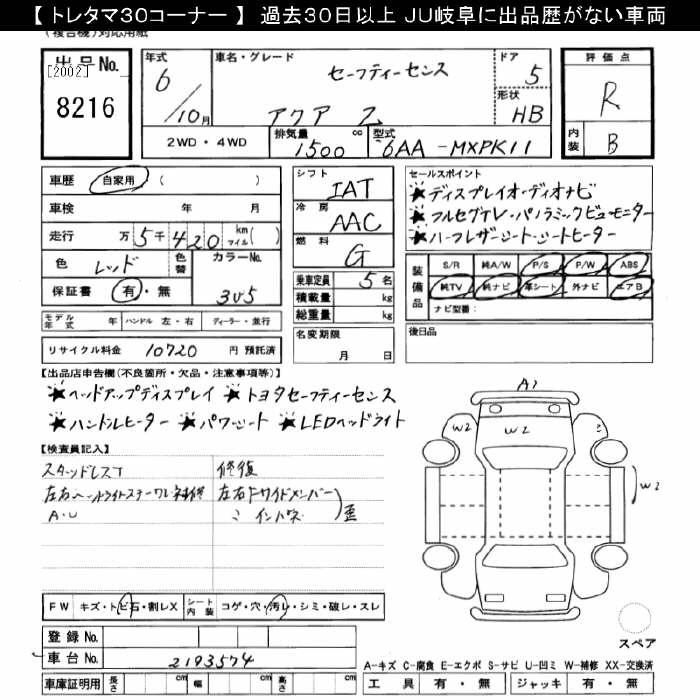 【 トレタマ30コーナー 】 過去30日以上 JU岐阜に出品歴がない車両
(複合機)対応用紙
出品No. [2002] 8216
年式 6/10月
車名・グレード セーフティーセンス アクア Z
ドア 5
形状 HB
評価点 R
内装 B
2WD・4WD
排気量 1500 cc
型式 6AA-MXPK11
車歴 自家用 ( )
車検 年 月
走行 万 5千420 km マイル( )
色 レッド 色替 カラーNo. 3U5
保証書 有・無
モデル年式 年 ハンドル 左・右 ディーラー・並行
リサイクル料金 10720 円 預託済
シフト IAT
冷房 AAC
燃料 G
乗車定員 5名
積載量 kg
総重量 kg
名変期限 月 日
セールスポイント
★ディスプレイオーディオナビ
★フルセグTV・パノラミックビューモニター
★ハーフレザーシート・シートヒーター
装備品 S/R 純A/W P/S P/W ABS
純TV 純ナビ 革シート 外ナビ エアB
ナビ型番:
後日品
【出品店申告欄(不良箇所・欠品・注意事項等)】
★ヘッドアップディスプレイ ★トヨタセーフティーセンス
★ハンドルヒーター ★パワーシート ★LEDヘッドライト
【検査員記入】
スタッドレスT 修復
左右ヘッドライトステー
左右Fサイドメンバー
〃 インパネ 歪
A・U
A1
W2 W2
W2
FW キズ・トビ石・割レX シート内装 コゲ・穴・汚レ・シミ・破レ・スレ
登録No.
車台No. 2193574
車庫証明用 長さ cm 幅 cm 高さ cm
スペア
A-キズ C-腐食 E-エクボ S-サビ U-凹ミ W-補修 XX-交換済
工具 有・無 ジャッキ 有・無